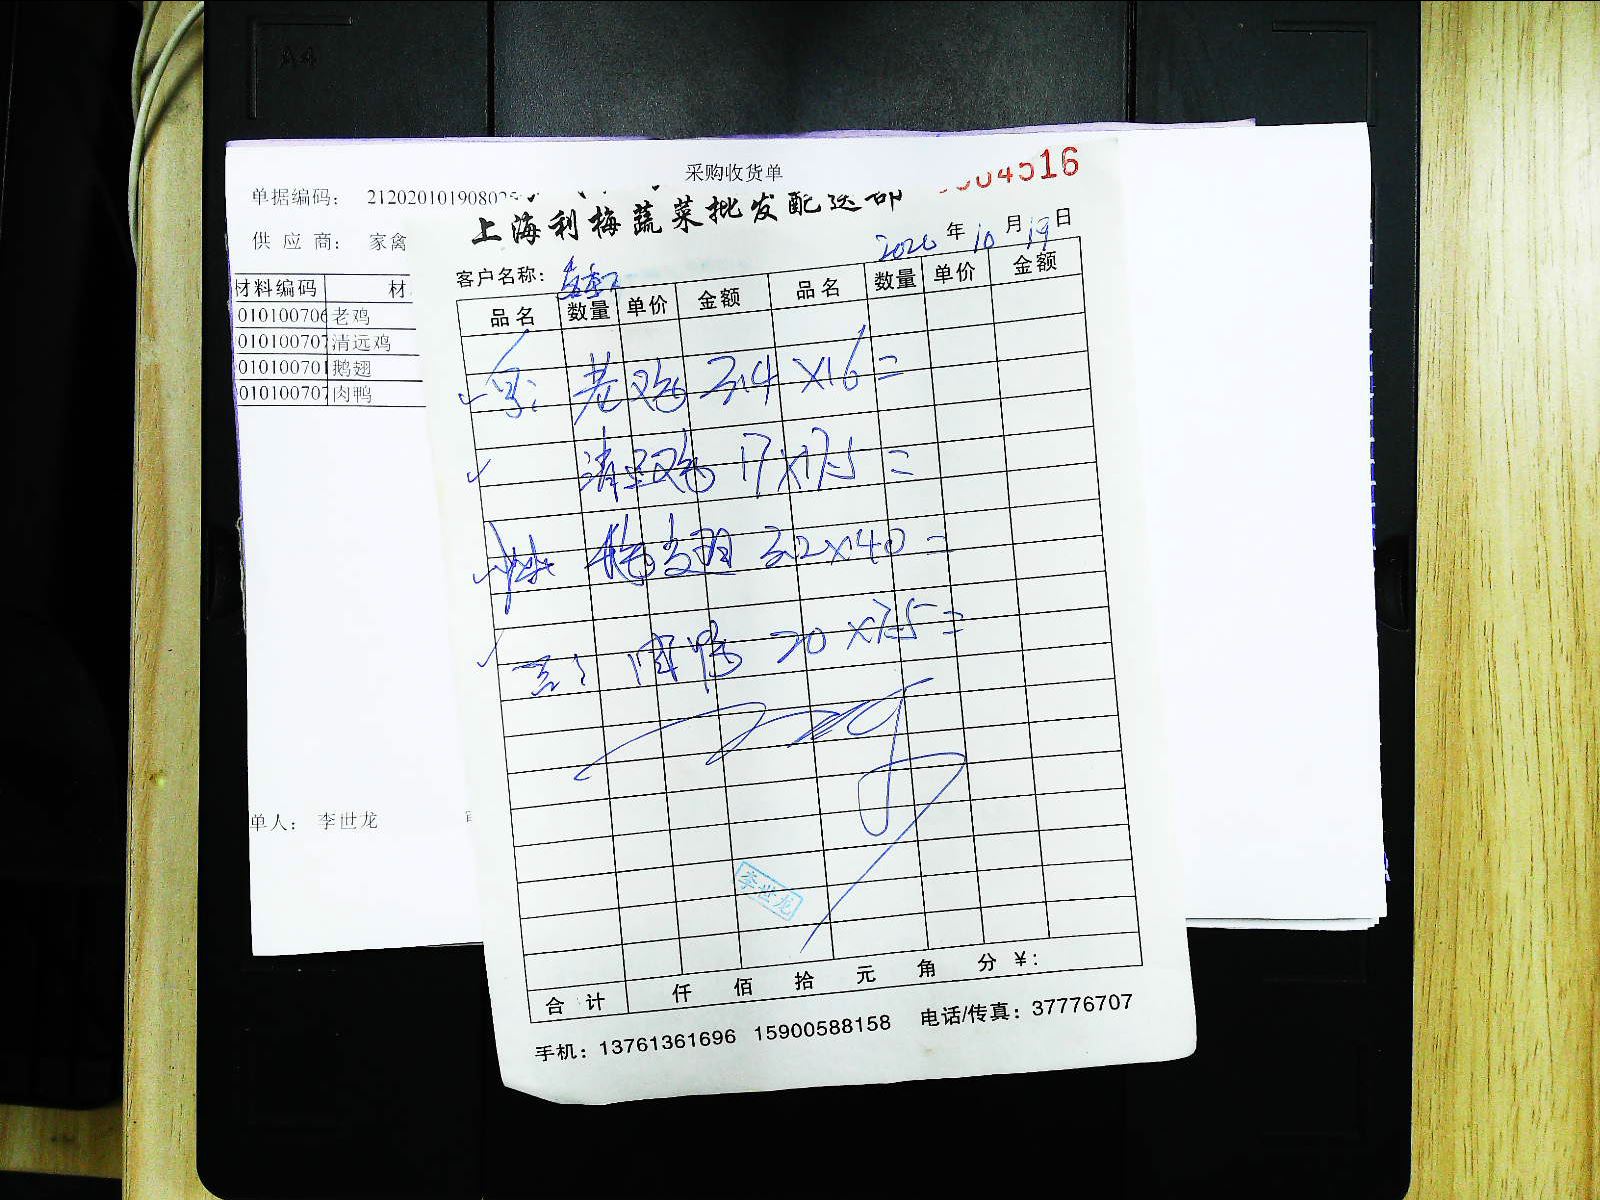 A4
采购收货单
单据编码： 2120201019080
供 应 商： 家禽
材料编码 材
010100706 老鸡
010100707 清远鸡
010100701 鹅翅
010100707 肉鸭
单人： 李世龙
16
上海利梅蔬菜批发配送部
2020 年 10 月 19 日
客户名称：
品 名 数量 单价 金额 品 名 数量 单价 金额
老鸡 34 ×16 =
清远鸡 17×17.5 =
鹅翅 32×40 =
肉鸭 20 ×7.5 =
李世龙
合 计 仟 佰 拾 元 角 分 ¥：
手机：13761361696 15900588158 电话/传真：37776707